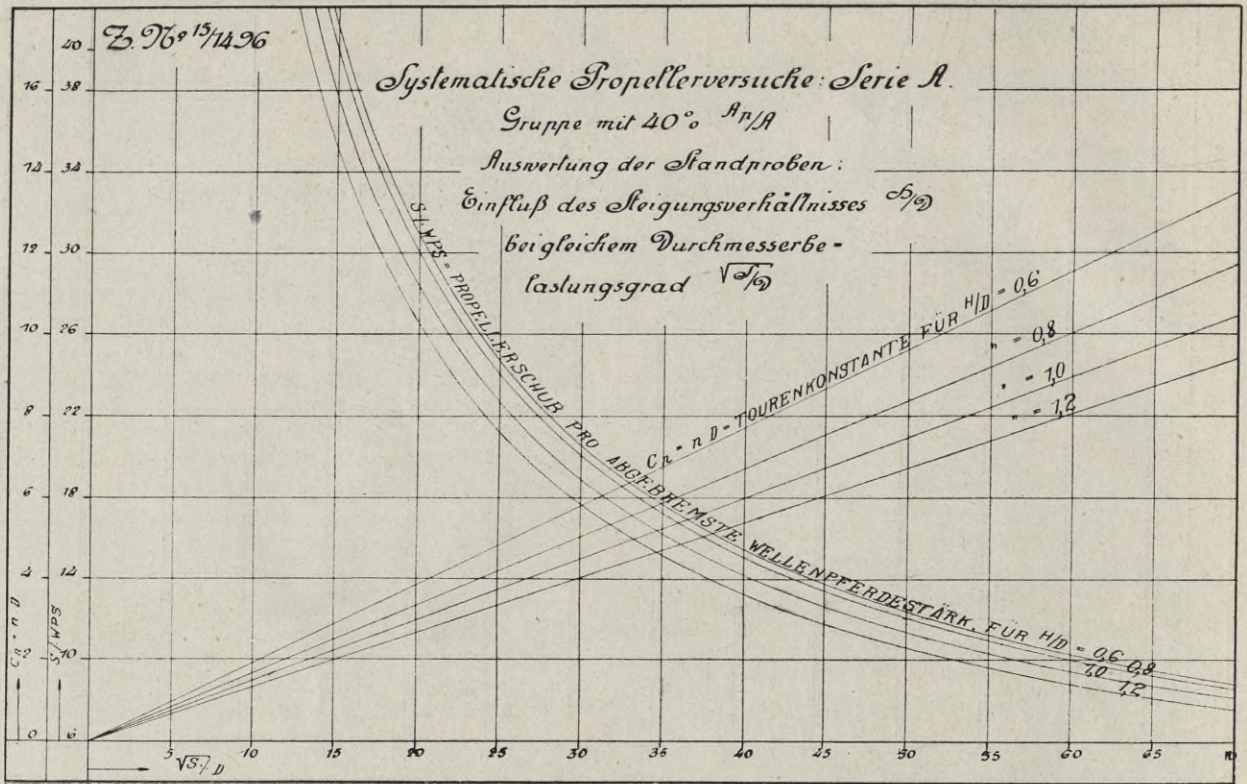 Z. Nº 15/1496
Systematische Propellerversuche: Serie A.
Gruppe mit 40% Ap/A
Auswertung der Standproben:
Einfluß des Steigungsverhältnisses
bei gleichem Durchmesserbe-
lastungsgrad
S/WPS = PROPELLERSCHUB PRO ABGEBREMSTE WELLENPFERDESTÄRK. FÜR H/D = 0,6 0,8
1,0 1,2
Cn = n D = TOURENKONSTANTE FÜR H/D = 0,6
" = 0,8
" = 1,0
" = 1,2
40
16 38
14 34
12 30
10 26
8 22
6 18
4 14
2 10
0 6
Cn = n D
S/WPS
5 10 15 20 25 30 35 40 45 50 55 60 65 70
√S/D